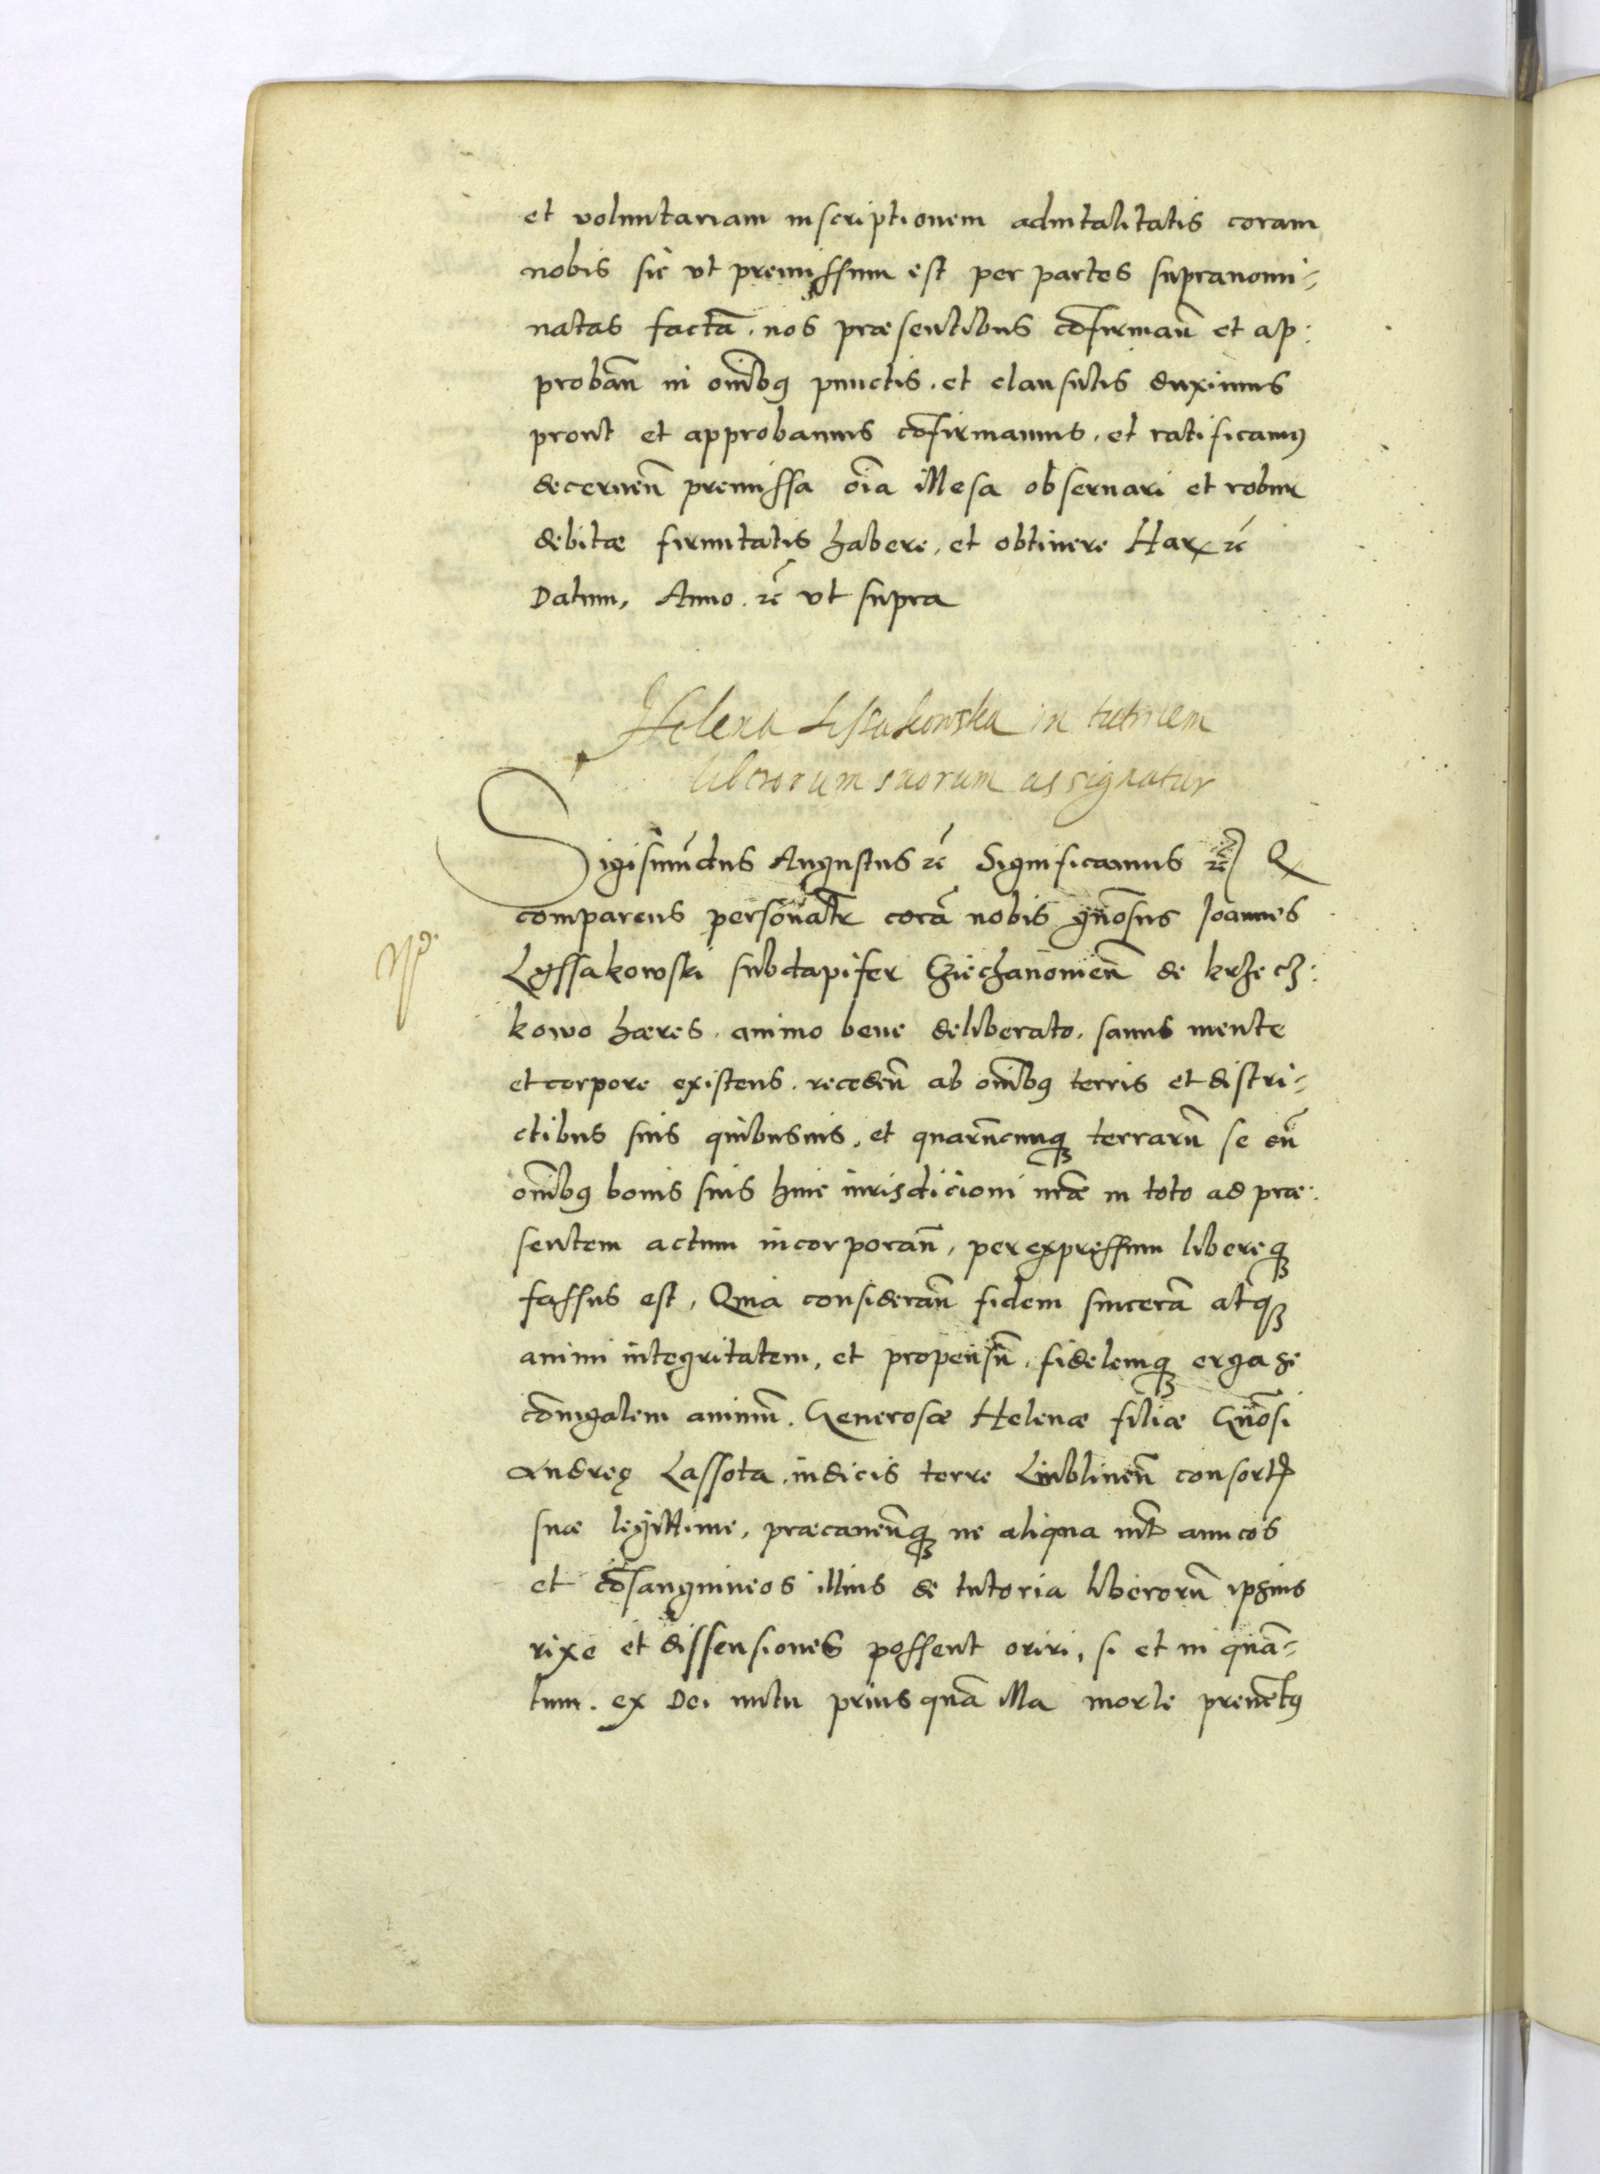 et voluntariam inscriptionem aduitalitatis coram
nobis sic vt premissum est per partes supranomi-
natas factā. nos præsentibus cōfirmañ et ap:
probañ in om̄ibꝫ punctis. et clausulis duximus
prout et approbamus cōfirmamus. et ratificamꝰ
decerneñ premissa oīa illesa obseruari et robur
debitæ firmitatis habere, et obtinere Har ꝛc̄
Datum, Anno. ꝛc̄ vt supra
Helena Lissakowska in tutricem
liberorum suorum assignatur
Sigismūdus Augustus ꝛc̄ Significamus ꝛc̄ Q
comparens personalr̄ corā nobis gn̄osus Joannes
Lyssakowski subdapifer Cziechanouieñ de krzecz:
kowo hæres. animo bene deliberato. sanus mente
et corpore existens. recedeñ ab om̄ibꝫ terris et distri-
ctibus suis quibusuis, et quarūcunqꝫ terrarū se cū
om̄ibꝫ bonis suis huic iurisdicioni nr̄æ in toto ad præ:
sentem actum incorporañ, per expressum libereqꝫ
fassus est, Quia considerañ fidem sincerā atqꝫ
animi integritatem, et propensū. fidelemqꝫ erga se
cōiugalem animū. Generosæ Helenæ filiæ Gn̄osi
Andreę Lassota. iudicis terre Lublineñ consortꝭ
suæ legittime, præcaueñqꝫ ne aliqua int̄ amicos
et cōsanguineos illius de tutoria liberorū ipsius
rixe et dissensiones possent oriri, si et in quā-
tum. ex Dei nutu prius quā illa morte preuētꝰ